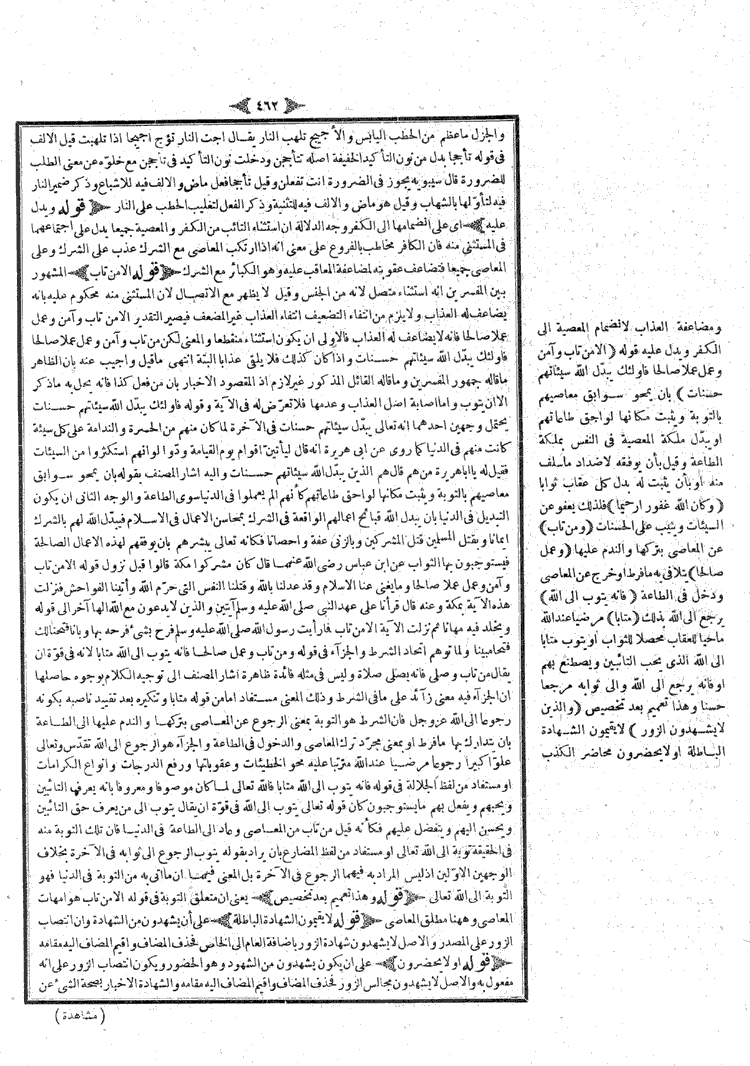 ٤٦٢
والجزل ماعظم من الحطب اليابس والأجيج تلهب النار يقال اجت النار تؤج اجيجا اذا تلهبت قيل الالف
فى قوله تأججا بدل من نون التأكيد الخفيفة اصله تتأججن ودخلت نون التأكيد فى تأججن مع خلوّه عن معنى الطلب
للضرورة قال سيبويه يجوز فى الضرورة انت تفعلن وقيل تأججا فعل ماض والالف فيه للاشباع وذكر ضمير النار
فيه لتأولها بالشهاب وقيل هو ماض والالف فيه للتثنية وذكر الفعل لتغليب الحطب على النار قوله ويدل
عليه اى على انضمامها الى الكفر وجه الدلالة ان استثناء التائب من الكفر والمعصية جميعا يدل على اجتماعهما
فى المستثنى منه فان الكافر مخاطب بالفروع على معنى انه اذا ارتكب المعاصى مع الشرك عذب على الشرك وعلى
المعاصى جميعا فتضاعف عقوبته لمضاعفة المعاقب عليه وهو الكبائر مع الشرك قوله الا من تاب المشهور
بين المفسرين انه استثناء متصل لانه من الجنس وقيل لا يظهر مع الاتصال لان المستثنى منه محكوم عليه بانه
يضاعف له العذاب ولا يلزم من انتفاء التضعيف انتفاء العذاب غير المضعف فيصير التقدير الا من تاب وآمن وعمل
عملا صالحا فانه لا يضاعف له العذاب فالاولى ان يكون استثناء منقطعا والمعنى لكن من تاب وآمن وعمل عملا صالحا
فاولئك يبدّل الله سيئاتهم حسنات واذا كان كذلك فلا يلقى عذابا البتة انتهى ماقيل واجيب عنه بان الظاهر
ماقاله جمهور المفسرين وماقاله القائل المذكور غير لازم اذ المقصود الاخبار بان من فعل كذا فانه يحل به ماذكر
الا ان يتوب واما اصابة اصل العذاب وعدمها فلا تعرض له فى الآية وقوله فاولئك يبدّل الله سيئاتهم حسنات
يحتمل وجهين احدهما انه تعالى يبدّل سيئاتهم حسنات فى الآخرة لما كان منهم من الحسرة والندامة على كل سيئة
كانت منهم فى الدنيا كما روى عن ابى هريرة انه قال ليأتين اقوام يوم القيامة ودّوا لو انهم استكثروا من السيئات
فقيل له يا اباهريرة من هم قال هم الذين يبدّل الله سيئاتهم حسنات واليه اشار المصنف بقوله بان يمحو سوابق
معاصيهم بالتوبة ويثبت مكانها لواحق طاعاتهم كأنهم لم يعملوا فى الدنيا سوى الطاعة والوجه الثانى ان يكون
التبديل فى الدنيا بان يبدل الله قبائح اعمالهم الواقعة فى الشرك بمحاسن الاعمال فى الاسلام فيبدّل الله لهم بالشرك
ايمانا وبقتل المسلمين قتل المشركين وبالزنى عفة واحصانا فكأنه تعالى يبشرهم بان يوفقهم لهذه الاعمال الصالحة
فيستوجبون بها الثواب عن ابن عباس رضى الله عنهما قال كان مشركوا مكة قالوا قبل نزول قوله الا من تاب
وآمن وعمل عملا صالحا ومايغنى عنا الاسلام وقد عدلنا بالله وقتلنا النفس التى حرّم الله وأتينا الفواحش فنزلت
هذه الآية بمكة وعنه قال قرأنا على عهد النبى صلى الله عليه وسلم آيتين والذين لا يدعون مع الله الها آخر الى قوله
ويخلد فيه مهانا ثم نزلت الآية الا من تاب فما رأيت رسول الله صلى الله عليه وسلم فرح بشئ فرحه بها وبانا فتحنالك
فتحا مبينا ولما توهم اتحاد الشرط والجزآء فى قوله ومن تاب وعمل صالحا فانه يتوب الى الله متابا لانه فى قوة ان
يقال من تاب وصلى فانه يصلى صلاة وليس فى مثله فائدة ظاهرة اشار المصنف الى توجيه الكلام بوجوه حاصلها
ان الجزآء فيه معنى زآئد على مافى الشرط وذلك المعنى مستفاد اما من قوله متابا وتنكيره بعد تقييد ناصبه بكونه
رجوعا الى الله عز وجل فان الشرط هو التوبة بمعنى الرجوع عن المعاصى بتركها والندم عليها الى الطاعة
بان يتدارك بها مافرط او بمعنى مجرّد ترك المعاصى والدخول فى الطاعة والجزآء هو الرجوع الى الله تقدّس وتعالى
علوّا كبيرا رجوعا مرضيا عند الله مترتبا عليه محو الخطيئات وعقوباتها ورفع الدرجات وانواع الكرامات
او مستفاد من لفظ الجلالة فى قوله فانه يتوب الى الله متابا فالله تعالى لما كان موصوفا ومعروفا بانه يعرف التائبين
ويحبهم ويفعل بهم مايستوجبون كان قوله تعالى يتوب الى الله فى قوّة ان يقال يتوب الى من يعرف حق التائبين
ويحسن اليهم ويتفضل عليهم فكأنه قيل من تاب من المعاصى وعاد الى الطاعة فى الدنيا فان تلك التوبة منه
فى الحقيقة توبة الى الله تعالى او مستفاد من لفظ المضارع بان يراد بقوله يتوب الرجوع الى ثوابه فى الآخرة بخلاف
الوجهين الاوّلين اذ ليس المراد به فيهما الرجوع فى الآخرة بل المعنى فيهما ان ماأتى به من التوبة فى الدنيا فهو
التوبة الى الله تعالى قوله وهذا تعميم بعد تخصيص يعنى ان متعلق التوبة فى قوله الا من تاب هو امهات
المعاصى وههنا مطلق المعاصى قوله لا يقيمون الشهادة الباطلة على أن يشهدون من الشهادة وان انتصاب
الزور على المصدر والاصل لا يشهدون شهادة الزور باضافة العام الى الخاص فحذف المضاف واقيم المضاف اليه مقامه
قوله او لا يحضرون على ان يكون يشهدون من الشهود وهو الحضور ويكون انتصاب الزور على انه
مفعول به والاصل لا يشهدون مجالس الزور فحذف المضاف واقيم المضاف اليه مقامه والشهادة الاخبار بصحة الشئ عن
( مشاهدة )
ومضاعفة العذاب لانضمام المعصية الى
الكفر ويدل عليه قوله (الا من تاب وآمن
وعمل عملا صالحا فاولئك يبدّل الله سيئاتهم
حسنات) بان يمحو سوابق معاصيهم
بالتوبة ويثبت مكانها لواحق طاعاتهم
او يبدّل ملكة المعصية فى النفس بملكة
الطاعة وقيل بأن يوفقه لاضداد ماسلف
منه او بأن يثبت له بدل كل عقاب ثوابا
(وكان الله غفورا رحيما) فلذلك يعفو عن
السيئات ويثيب على الحسنات (ومن تاب)
عن المعاصى بتركها والندم عليها (وعمل
صالحا) يتلافى به مافرط او خرج عن المعاصى
ودخل فى الطاعة (فانه يتوب الى الله)
يرجع الى الله بذلك (متابا) مرضيا عند الله
ماحيا للعقاب محصلا للثواب او يتوب متابا
الى الله الذى يحب التائبين ويصطنع بهم
او فانه يرجع الى الله والى ثوابه مرجعا
حسنا وهذا تعميم بعد تخصيص (والذين
لا يشهدون الزور) لا يقيمون الشهادة
الباطلة او لا يحضرون محاضر الكذب